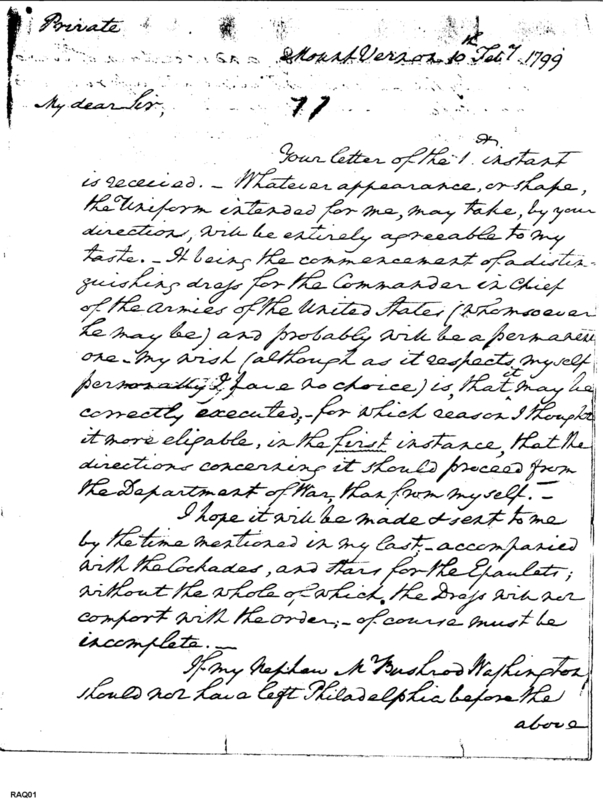 Private
Mount Vernon 10th Feby 1799
My dear Sir,
77
Your letter of the 1st instant
is received. – Whatever appearance, or shape,
the Uniform intended for me, may take, by your
directions, will be entirely agreeable to my
taste. – It being the commencement of a distin-
guishing dress for the Commander in Chief
of the Armies of the United States (whomsoever
he may be) and probably will be a permanent
one – my wish (although as it respects myself
personally I have no choice) is, that it may be
correctly executed; – for which reason I thought
it more eligable, in the first instance, that the
directions concerning it should proceed from
the Department of War, than from myself. –
I hope it will be made & sent to me
by the time mentioned in my last; – accompanied
with the Cockades, and stars for the Epaulets;
without the whole of which, the Dress will not
comport with the order; – of course must be
incomplete. –
If my Nephew Mr Bushrod Washington
should not have left Philadelphia before the
above
RAQ01